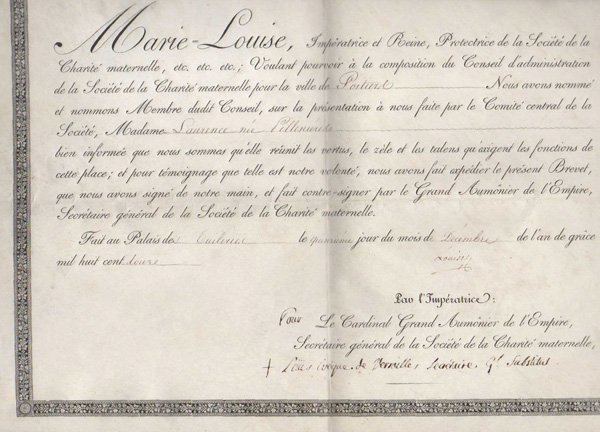 Marie-Louise, Impératrice et Reine, Protectrice de la Société de la
Charité maternelle, etc. etc. etc.; Voulant pourvoir à la composition du Conseil d'administration
de la Société de la Charité maternelle pour la ville de Poitiers Nous avons nommé
et nommons Membre dudit Conseil, sur la présentation à nous faite par le Comité central de la
Société, Madame Laurence née
bien informée que nous sommes qu'elle réunit les vertus, le zèle et les talens qu'exigent les fonctions de
cette place; et pour témoignage que telle est notre volonté, nous avons fait expédier le présent Brevet,
que nous avons signé de notre main, et fait contre-signer par le Grand Aumônier de l'Empire,
Secrétaire général de la Société de la Charité maternelle.
Fait au Palais des Tuileries le quinzième jour du mois de Décembre de l'an de grâce
mil huit cent douze
Louise
Par l'Impératrice:
Pour Le Cardinal Grand Aumônier de l'Empire,
Secrétaire général de la Société de la Charité maternelle,
+ Louis évêque de Versailles, Secrétaire Gl Substitut